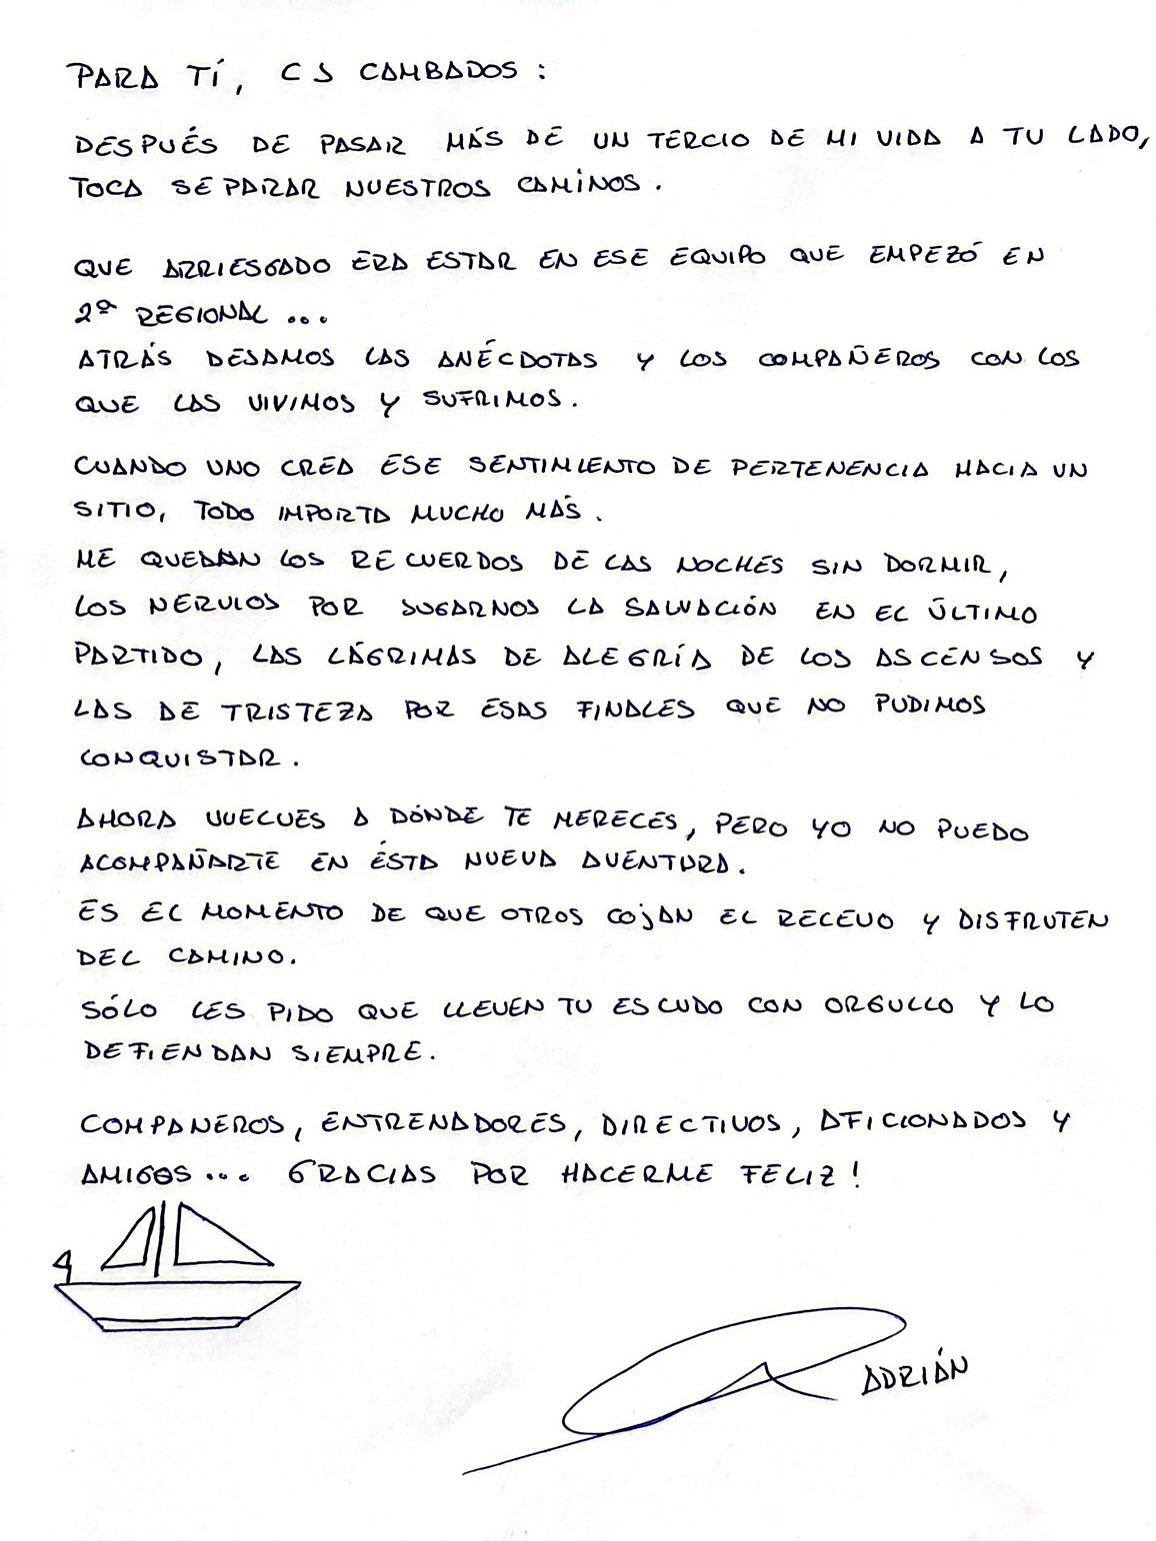 PARA TÍ, CJ CAMBADOS:
DESPUÉS DE PASAR MÁS DE UN TERCIO DE MI VIDA A TU LADO,
TOCA SEPARAR NUESTROS CAMINOS.
QUE ARRIESGADO ERA ESTAR EN ESE EQUIPO QUE EMPEZÓ EN
2ª REGIONAL...
ATRÁS DEJAMOS LAS ANÉCDOTAS Y LOS COMPAÑEROS CON LOS
QUE LAS VIVIMOS Y SUFRIMOS.
CUANDO UNO CREA ESE SENTIMIENTO DE PERTENENCIA HACIA UN
SITIO, TODO IMPORTA MUCHO MÁS.
ME QUEDAN LOS RECUERDOS DE LAS NOCHES SIN DORMIR,
LOS NERVIOS POR JUGARNOS LA SALVACIÓN EN EL ÚLTIMO
PARTIDO, LAS LÁGRIMAS DE ALEGRÍA DE LOS ASCENSOS Y
LAS DE TRISTEZA POR ESAS FINALES QUE NO PUDIMOS
CONQUISTAR.
AHORA VUELVES A DÓNDE TE MERECES, PERO YO NO PUEDO
ACOMPAÑARTE EN ÉSTA NUEVA AVENTURA.
ES EL MOMENTO DE QUE OTROS COJAN EL RELEVO Y DISFRUTEN
DEL CAMINO.
SÓLO LES PIDO QUE LLEVEN TU ESCUDO CON ORGULLO Y LO
DEFIENDAN SIEMPRE.
COMPANEROS, ENTRENADORES, DIRECTIVOS, AFICIONADOS Y
AMIGOS... GRACIAS POR HACERME FELIZ!
ADRIÁN